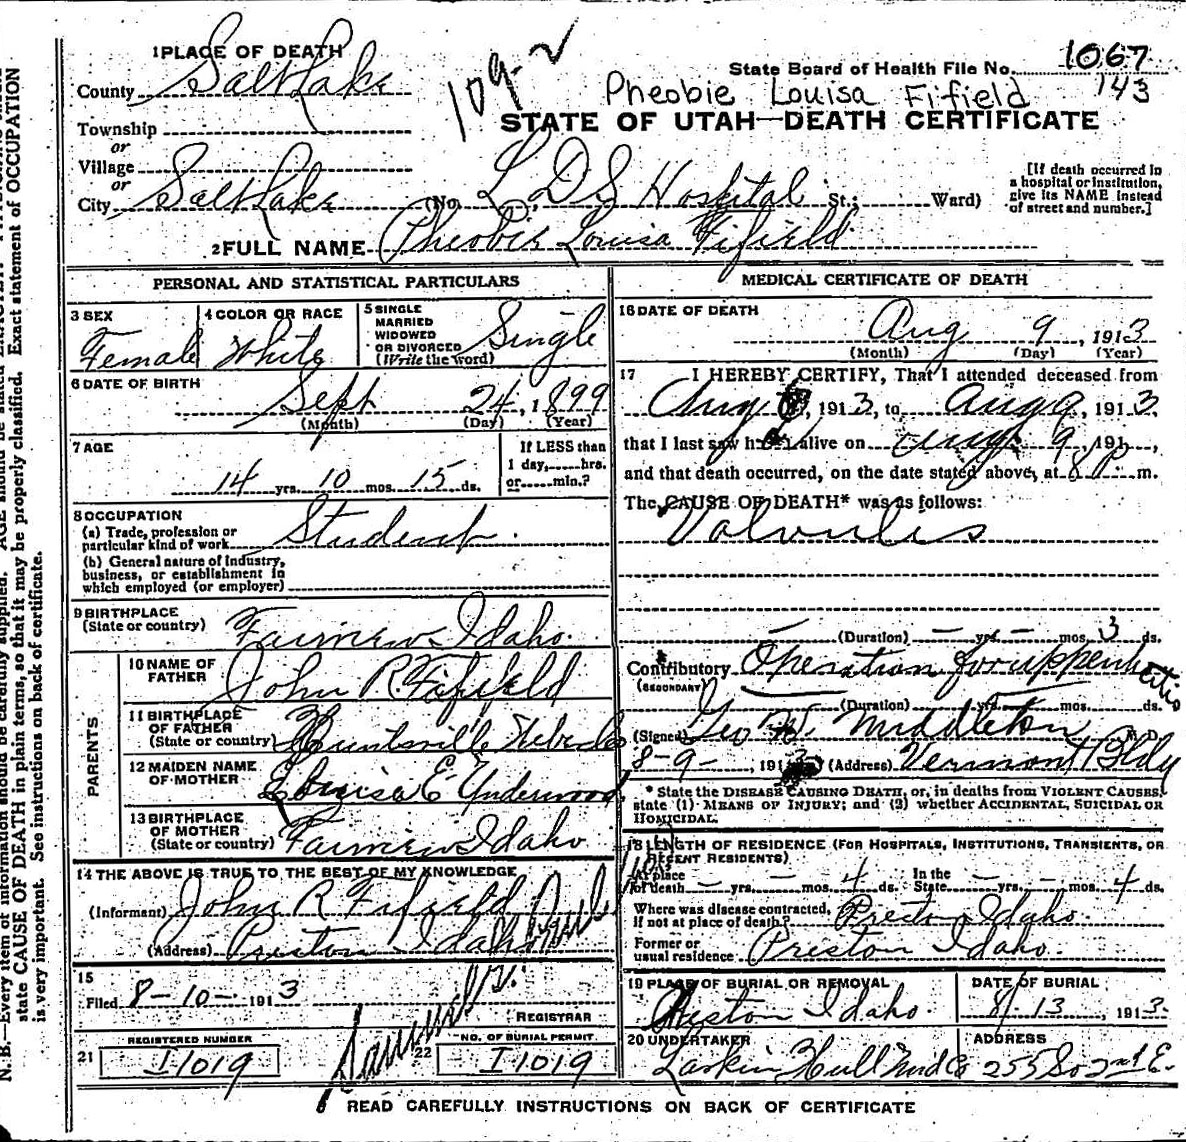 1 PLACE OF DEATH
County Salt Lake
Township
or
Village
or
City Salt Lake (No. L.D.S Hospital St.; Ward)
109-
State Board of Health File No. 1067
143
Pheobie Louisa Fifield
STATE OF UTAH—DEATH CERTIFICATE
[If death occurred in
a hospital or institution,
give its NAME instead
of street and number.]
2 FULL NAME Pheobie Louisa Fifield
PERSONAL AND STATISTICAL PARTICULARS
3 SEX
Female
4 COLOR OR RACE
White
5 SINGLE
MARRIED
WIDOWED
OR DIVORCED
(Write the word)
Single
6 DATE OF BIRTH
Sept 24, 1899
(Month) (Day) (Year)
7 AGE
14 yrs. 10 mos. 15 ds.
If LESS than
1 day, hrs.
or min.?
8 OCCUPATION
(a) Trade, profession or
particular kind of work Student.
(b) General nature of industry,
business, or establishment in
which employed (or employer)
9 BIRTHPLACE
(State or country) Fairview Idaho.
PARENTS
10 NAME OF
FATHER John R. Fifield
11 BIRTHPLACE
OF FATHER
(State or country) Huntsville
12 MAIDEN NAME
OF MOTHER E. Underwood
13 BIRTHPLACE
OF MOTHER
(State or country) Fairview Idaho
14 THE ABOVE IS TRUE TO THE BEST OF MY KNOWLEDGE
(Informant) John R Fifield
(Address) Preston Idaho
15
Filed 8-10- 1913
REGISTRAR
REGISTERED NUMBER
21 I 1019
NO. OF BURIAL PERMIT
22 I 1019
MEDICAL CERTIFICATE OF DEATH
16 DATE OF DEATH
Aug 9, 1913
(Month) (Day) (Year)
17 I HEREBY CERTIFY, That I attended deceased from
Aug , 1913, to Aug 9, 1913,
that I last saw h er alive on Aug 9, 191 ,
and that death occurred, on the date stated above, at 8 P. m.
The CAUSE OF DEATH* was as follows:
Volvulus
(Duration) — yrs. — mos. 3 ds.
Contributory Operation for appendicitis
(SECONDARY)
(Duration) yrs. mos. ds.
(Signed) Geo W. Middleton M. D.
8-9-, 1913 (Address) Vermont Bldg
* State the DISEASE CAUSING DEATH, or, in deaths from VIOLENT CAUSES,
state (1) MEANS OF INJURY; and (2) whether ACCIDENTAL, SUICIDAL OR
HOMICIDAL.
18 LENGTH OF RESIDENCE (FOR HOSPITALS, INSTITUTIONS, TRANSIENTS, OR
RECENT RESIDENTS)
At place
of death — yrs. — mos. 4 ds. In the
State — yrs. — mos. 4 ds.
Where was disease contracted,
if not at place of death? Preston Idaho.
Former or
usual residence Preston Idaho.
19 PLACE OF BURIAL OR REMOVAL
Preston Idaho.
DATE OF BURIAL
8/13, 1913.
20 UNDERTAKER
Larkin Hull Und Co
ADDRESS
255 So 2nd E.
READ CAREFULLY INSTRUCTIONS ON BACK OF CERTIFICATE
N. B.—Every item of information should be carefully supplied. AGE should be stated EXACTLY.
state CAUSE OF DEATH in plain terms, so that it may be properly classified. Exact statement of OCCUPATION
is very important. See instructions on back of certificate.